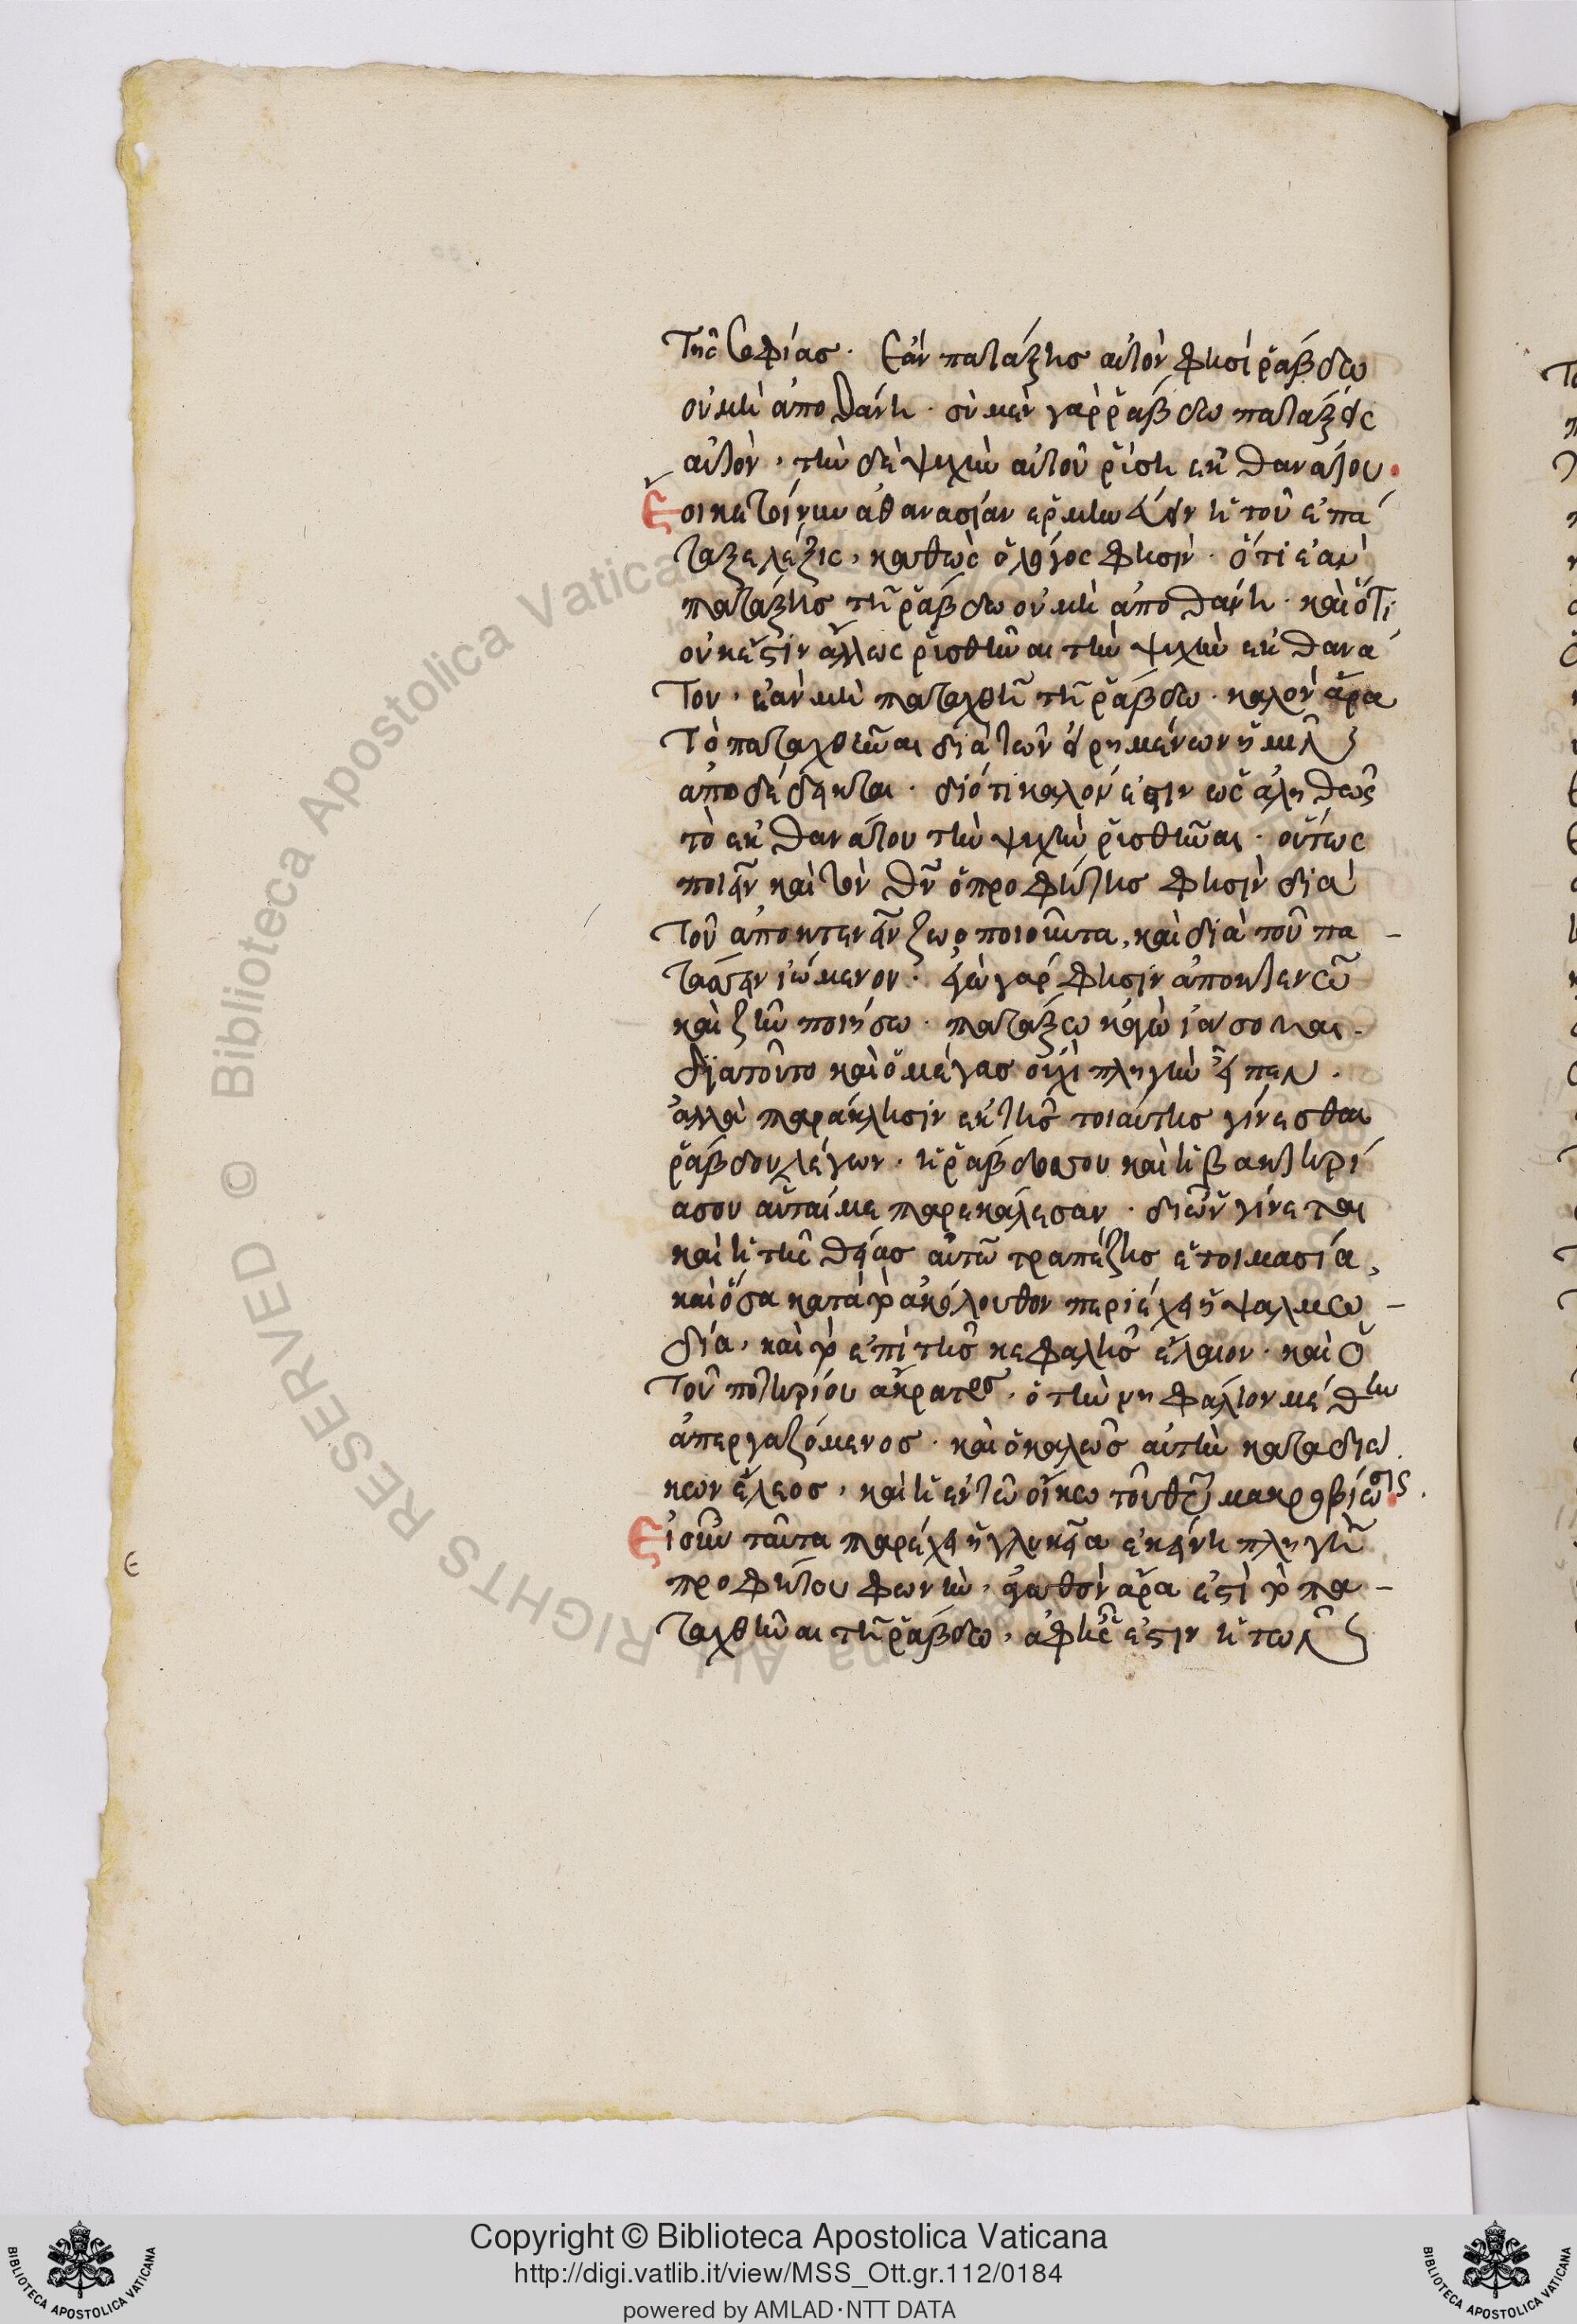 τῆς σοφίας· Ἐὰν πατάξης αὐτὸν φησὶ ῥάβδω
οὐ μὴ ἀποθάνη· σὺ μὲν γὰρ ῥάβδω πατάξεις
αὐτὸν, τὴν δὲ ψυχὴν αὐτοῦ ῥύση ἐκ θανάτου.
Ἔοικε τοίνυν ἀθανασίαν ἑρμηνεύειν ἡ τοῦ ἐπά
ταξε λέξις, καθὼς ὁ λόγος φησίν· ὅτι ἐὰν
πατάξης τῆ ῥάβδω οὐ μὴ ἀποθάνη· καὶ ὅτι
οὐκ ἔστιν ἄλλως ῥυσθῆναι τὴν ψυχὴν ἐκ θανά
του, ἐὰν μὴ παταχθῆ τῆ ῥάβδω· καλὸν ἄρα
τὸ παταχθῆναι διὰ τῶν εἰρημένων ἡμῖν
ἀποδέδεικται· διότι καλόν ἐστιν ὡς ἀληθῶς
τὸ ἐκ θανάτου τὴν ψυχὴν ῥυσθῆναι· οὕτως
ποιεῖν καὶ τὸν θν ὁ προφήτης φησὶν διὰ
τοῦ ἀποκτενεῖν ζωοποιοῦντα, καὶ διὰ τοῦ πα-
τάσσειν ἰώμενον· ἐγὼ γάρ φησιν ἀποκτενῶ
καὶ ζῆν ποιήσω· πατάξω κἀγὼ ἰάσομαι·
διατοῦτο καὶ ὁ μέγας οὐχὶ πληγὴν εἶπεν·
ἀλλὰ παράκλησιν ἐκ τῆς τοιαύτης γίνεσθαι
ῥάβδου λέγων· ἡ ῥάβδος σου καὶ ἡ βακτηρί
α σου αὗταί με παρεκάλεσαν· δι ὧν γίνεται
καὶ ἡ τῆς θείας αὐτῶ τραπέζης ἑτοιμασία,
καὶ ὅσα κατὰ τὸ ἀκόλουθον περιέχει ἡ ψαλμω-
δία, καὶ τὸ ἐπὶ τῆς κεφαλῆς ἔλαιον· καὶ ὁ
τοῦ ποτηρίου ἄκρατος· ὁ τὴν νηφάλιον μέθην
ἀπεργαζόμενος· καὶ ὁ καλῶς αὐτὴν καταδιώ
κων ἔλεος, καὶ ἡ ἐν τῶ οἴκω τοῦ θυ μακροβίωσις.
Εἰ οὖν ταῦτα παρέχει ἡ γλυκεῖα ἐκείνη πληγὴ
προφήτου φωνὴν, ἀγαθὸν ἄρα ἐστὶ τὸ πα-
ταχθῆναι τῆ ῥάβδω, ἀφ ἧς ἐστιν ἡ τῶν
ε
Copyright © Biblioteca Apostolica Vaticana
http://digi.vatlib.it/view/MSS_Ott.gr.112/0184
powered by AMLAD·NTT DATA